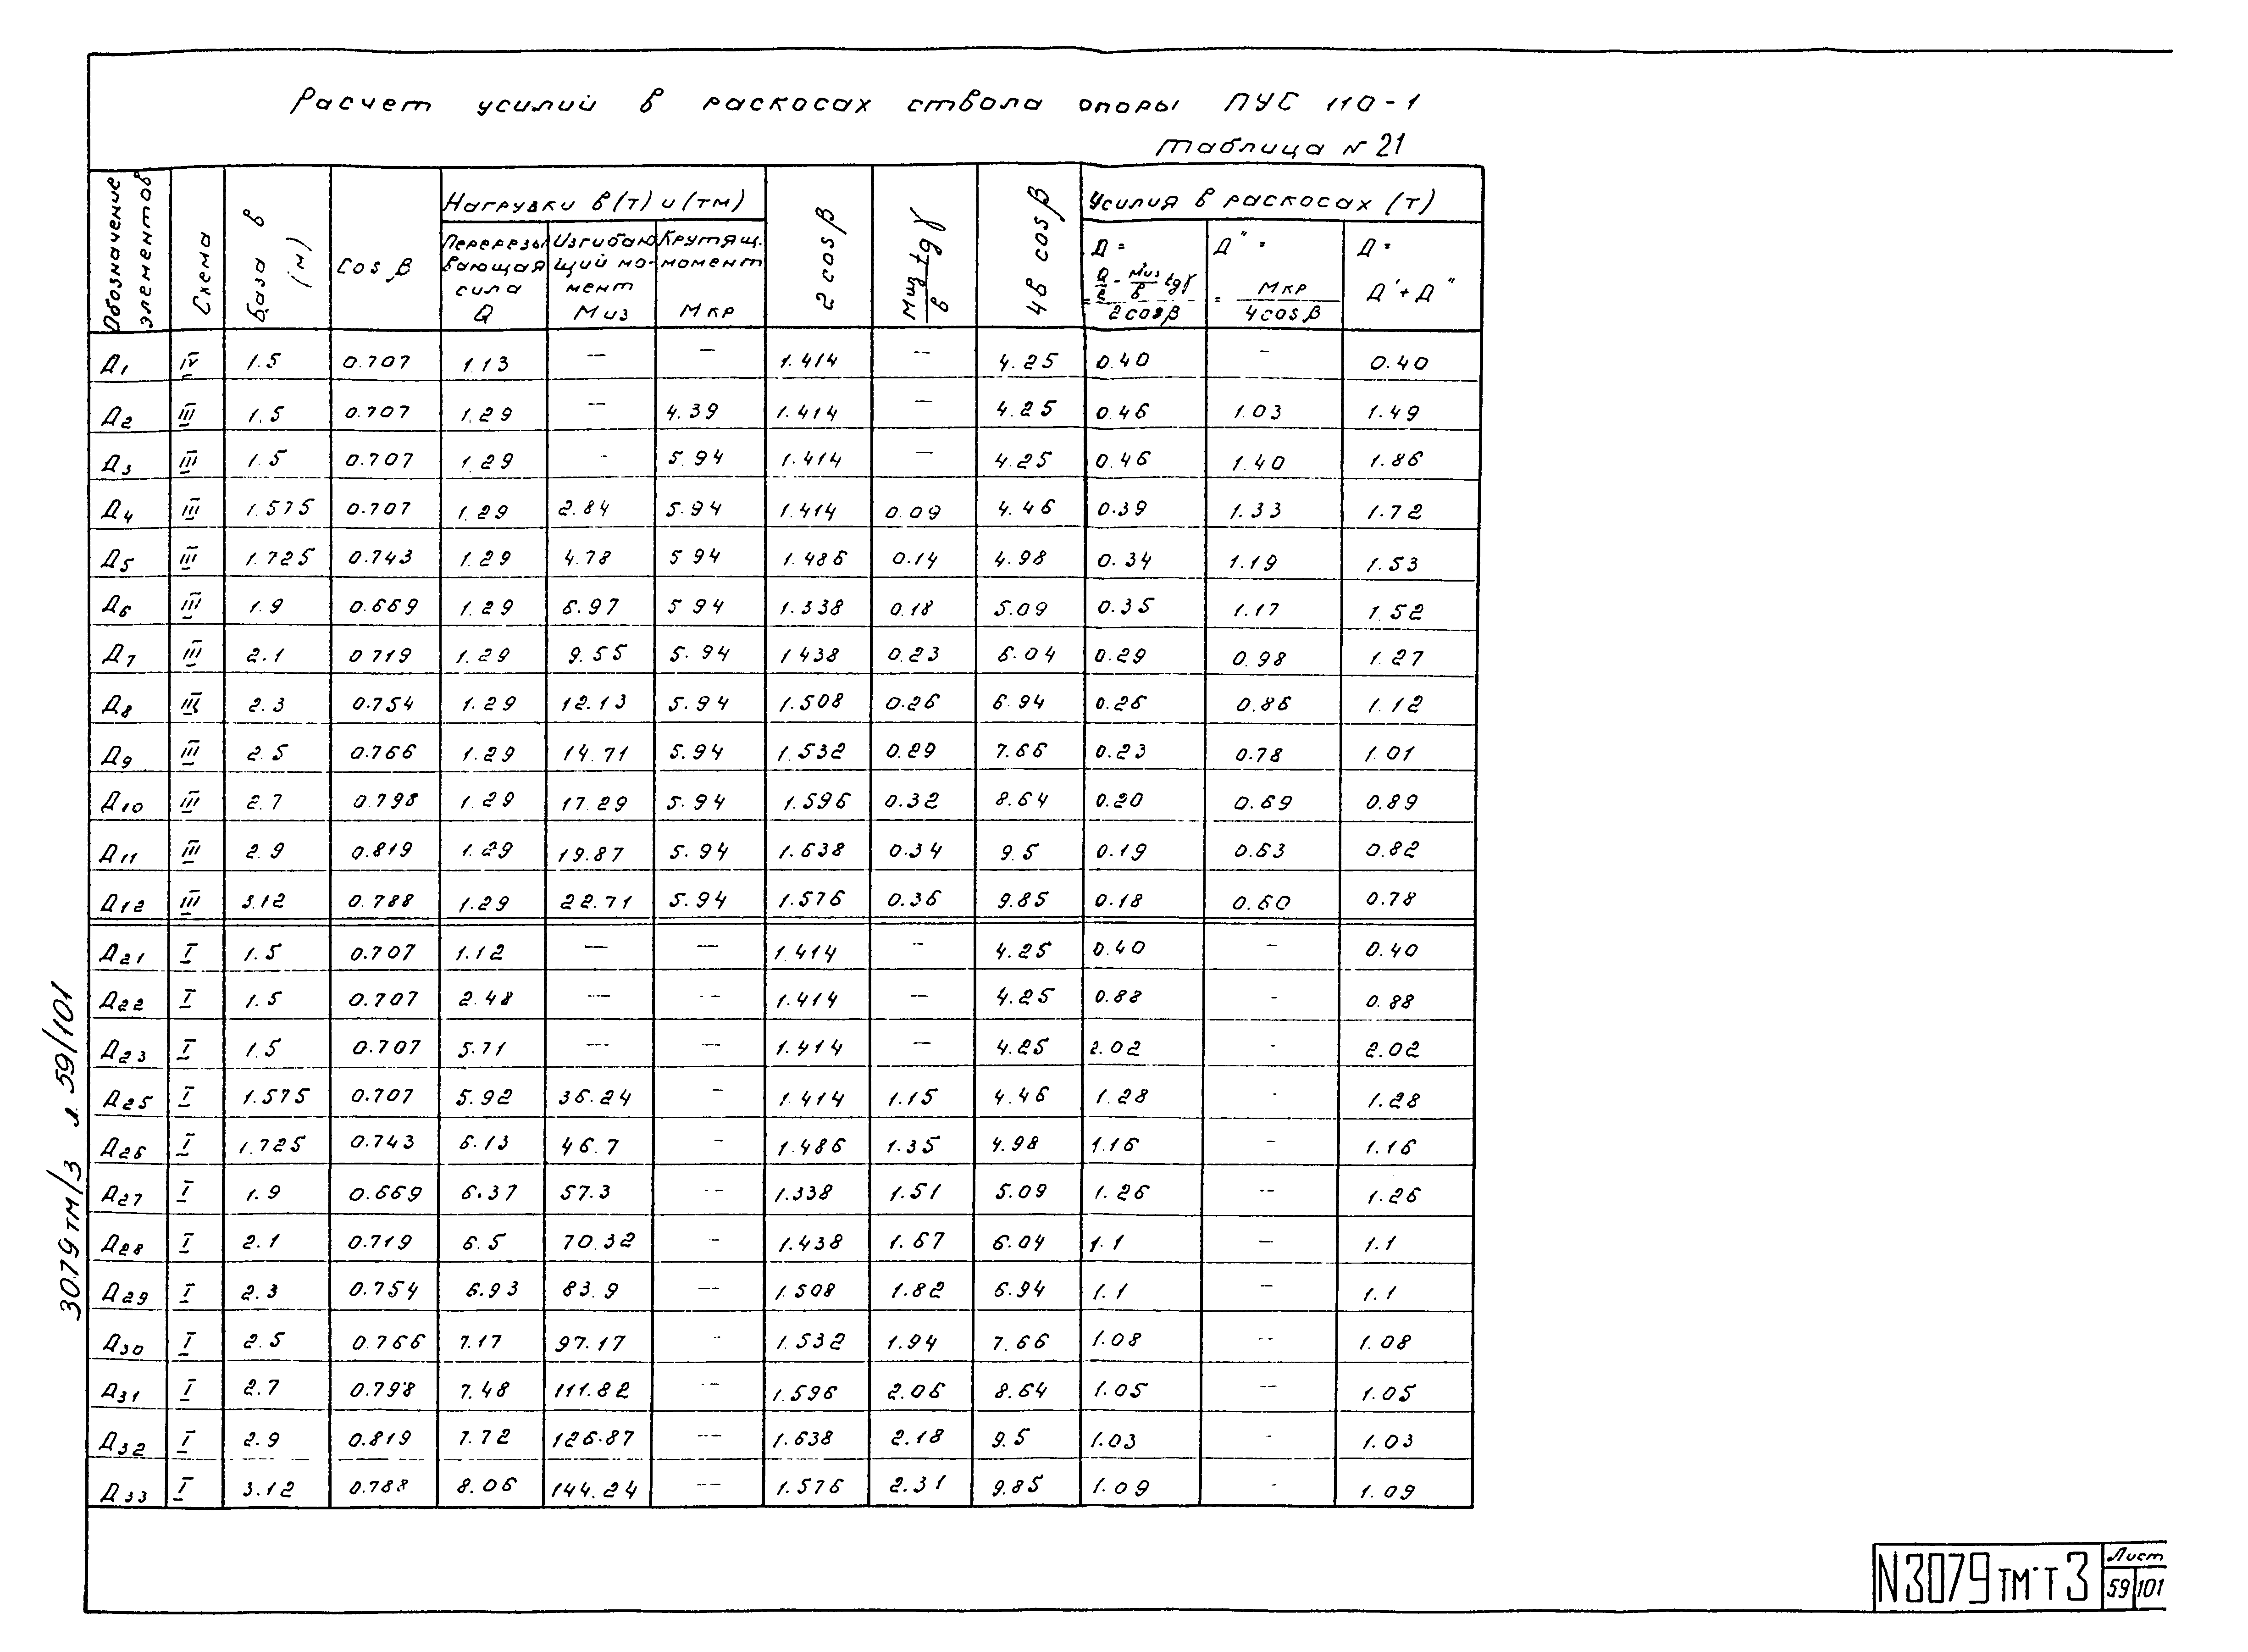 Расчет усилий в раскосах ствола опоры ПУС 110-1
Таблица N 21
Обозначение элементов | Схема | База в (м) | Cos β | Нагрузки в (т) и (тм) | 2 cos β | Миз tgγ / в | 4в cos β | Усилия в раскосах (т)
Перерезывающая сила Q | Изгибающий момент Миз | Крутящ. момент Мкр | Д = = Q/2 - Миз/в tgγ / 2cosβ | Д" = = Мкр / 4cosβ | Д = Д' + Д"
Д1 | IV | 1.5 | 0.707 | 1.13 | — | — | 1.414 | — | 4.25 | 0.40 | - | 0.40
Д2 | III | 1.5 | 0.707 | 1.29 | — | 4.39 | 1.414 | — | 4.25 | 0.46 | 1.03 | 1.49
Д3 | III | 1.5 | 0.707 | 1.29 | - | 5.94 | 1.414 | — | 4.25 | 0.46 | 1.40 | 1.86
Д4 | III | 1.575 | 0.707 | 1.29 | 2.84 | 5.94 | 1.414 | 0.09 | 4.46 | 0.39 | 1.33 | 1.72
Д5 | III | 1.725 | 0.743 | 1.29 | 4.78 | 5 94 | 1.486 | 0.14 | 4.98 | 0.34 | 1.19 | 1.53
Д6 | III | 1.9 | 0.669 | 1.29 | 6.97 | 5 94 | 1.338 | 0.18 | 5.09 | 0.35 | 1.17 | 1.52
Д7 | III | 2.1 | 0 719 | 1.29 | 9.55 | 5.94 | 1 438 | 0.23 | 6.04 | 0.29 | 0.98 | 1.27
Д8 | III | 2.3 | 0.754 | 1.29 | 12.13 | 5.94 | 1.508 | 0.26 | 6.94 | 0.26 | 0.86 | 1.12
Д9 | III | 2.5 | 0.766 | 1.29 | 14.71 | 5.94 | 1.532 | 0.29 | 7.66 | 0.23 | 0.78 | 1.01
Д10 | III | 2.7 | 0.798 | 1.29 | 17.29 | 5.94 | 1.596 | 0.32 | 8.64 | 0.20 | 0.69 | 0.89
Д11 | III | 2.9 | 0.819 | 1.29 | 19.87 | 5.94 | 1.638 | 0.34 | 9.5 | 0.19 | 0.63 | 0.82
Д12 | III | 3.12 | 0.788 | 1.29 | 22.71 | 5.94 | 1.576 | 0.36 | 9.85 | 0.18 | 0.60 | 0.78
Д21 | I | 1.5 | 0.707 | 1.12 | — | — | 1.414 | - | 4.25 | 0.40 | - | 0.40
Д22 | I | 1.5 | 0.707 | 2.48 | — | - | 1.414 | — | 4.25 | 0.88 | - | 0.88
Д23 | I | 1.5 | 0.707 | 5.71 | — | — | 1.414 | — | 4.25 | 2.02 | - | 2.02
Д25 | I | 1.575 | 0.707 | 5.92 | 36.24 | - | 1.414 | 1.15 | 4.46 | 1.28 | - | 1.28
Д26 | I | 1.725 | 0.743 | 6.13 | 46.7 | - | 1.486 | 1.35 | 4.98 | 1.16 | - | 1.16
Д27 | I | 1.9 | 0.669 | 6.37 | 57.3 | - | 1.338 | 1.51 | 5.09 | 1.26 | - | 1.26
Д28 | I | 2.1 | 0.719 | 6.5 | 70.32 | - | 1.438 | 1.67 | 6.04 | 1.1 | — | 1.1
Д29 | I | 2.3 | 0.754 | 6.93 | 83.9 | — | 1.508 | 1.82 | 6.94 | 1.1 | — | 1.1
Д30 | I | 2.5 | 0.766 | 7.17 | 97.17 | - | 1.532 | 1.94 | 7.66 | 1.08 | - | 1.08
Д31 | I | 2.7 | 0.798 | 7.48 | 111.82 | - | 1.596 | 2.06 | 8.64 | 1.05 | — | 1.05
Д32 | I | 2.9 | 0.819 | 7.72 | 126.87 | — | 1.638 | 2.18 | 9.5 | 1.03 | - | 1.03
Д33 | I | 3.12 | 0.788 | 8.06 | 144.24 | — | 1.576 | 2.31 | 9.85 | 1.09 | - | 1.09
3079тм/3 л. 59/101
N3079тм-т3
Лист
59 | 101